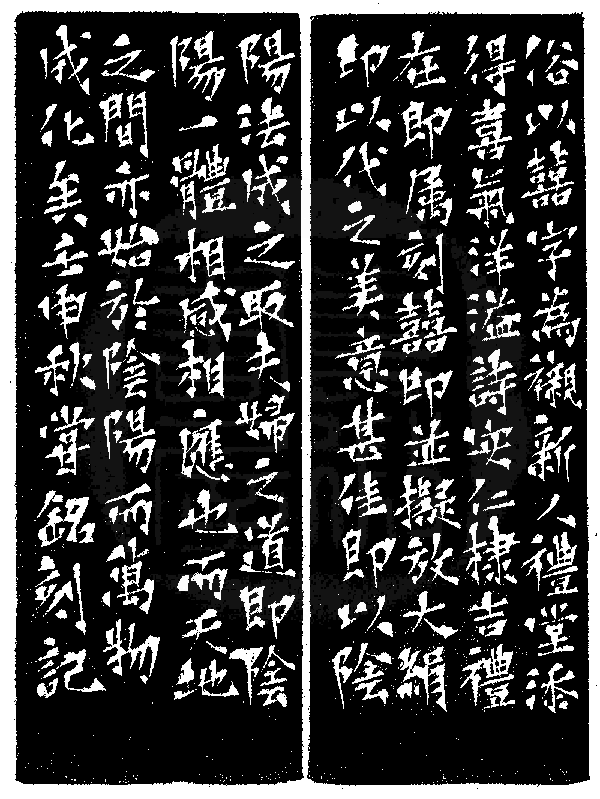 俗以囍字為襯新人禮堂添
得喜氣洋溢詩安仁棣吉禮
在即属刻囍印並擬放大絹
印以代之美意甚佳即以陰
陽法成之取夫婦之道即陰
陽一體相感相應也而天地
之間亦始於陰陽而萬物
成化矣壬申秋嘗銘刻記